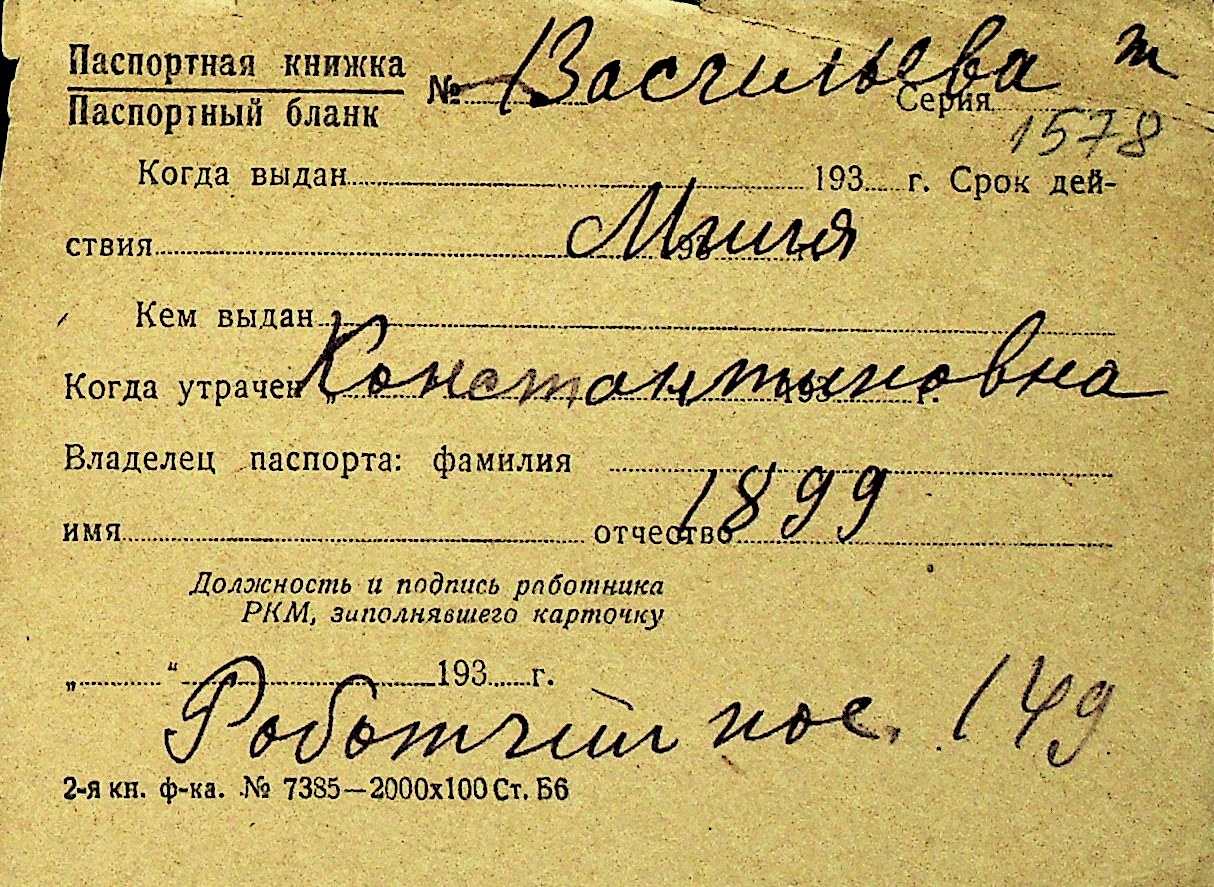 Паспортная книжка
Паспортный бланк
№ Васильева т
Серия
1578
Когда выдан 193 г. Срок дей-
ствия 193
Кем выдан
Когда утрачен „ Константиновна 193 г.
Владелец паспорта: фамилия
1899
имя отчество
Должность и подпись работника
РКМ, заполнявшего карточку
„ “ 193 г.
Роботчий пос. 149
2-я кн. ф-ка. № 7385—2000х100 Ст. Б6